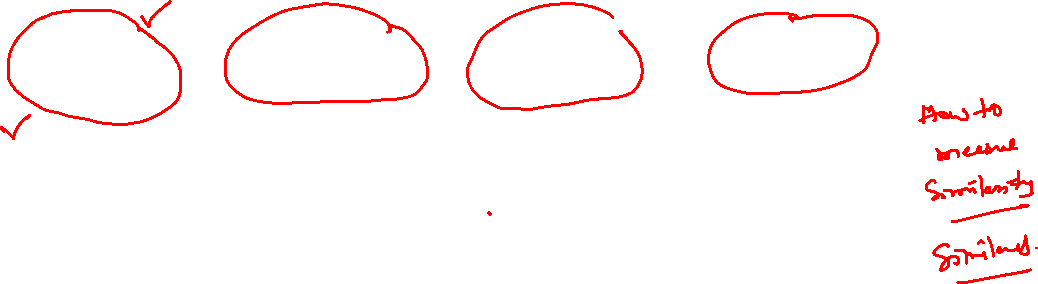 How to
measure
Similarity
Similar